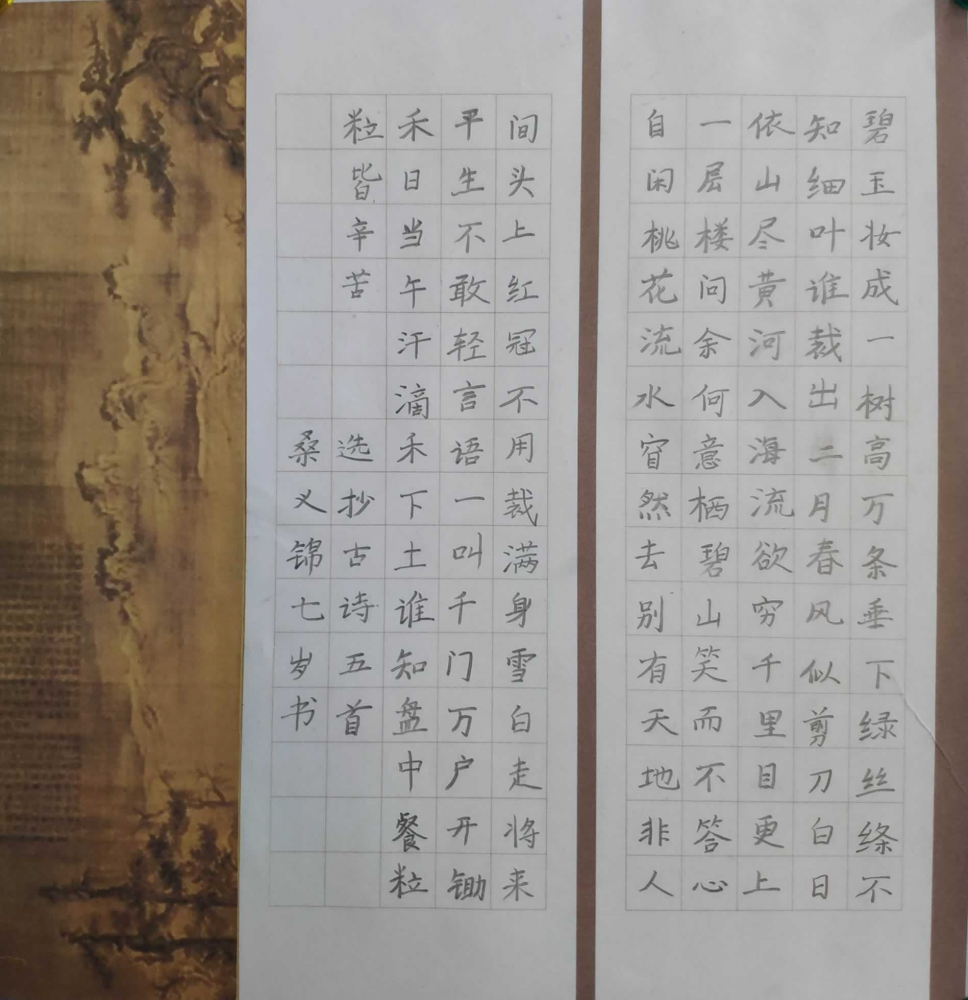 碧玉妆成一树高万条垂下绿丝绦不
知细叶谁裁出二月春风似剪刀白日
依山尽黄河入海流欲穷千里目更上
一层楼问余何意栖碧山笑而不答心
自闲桃花流水窅然去别有天地非人
间头上红冠不用裁满身雪白走将来
平生不敢轻言语一叫千门万户开锄
禾日当午汗滴禾下土谁知盘中餐粒
粒皆辛苦
选抄古诗五首
桑义锦七岁书